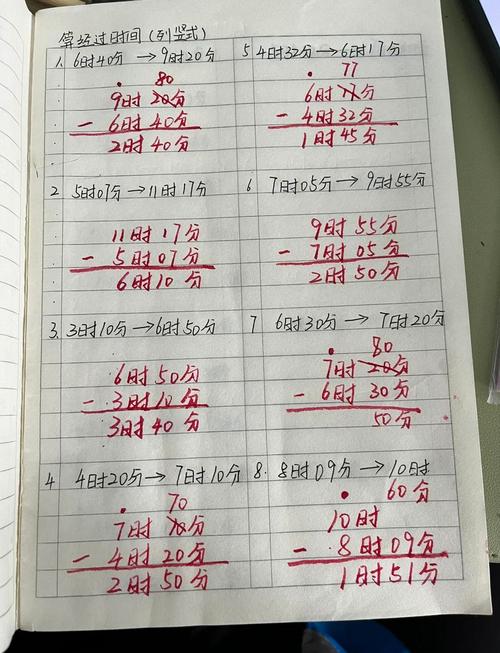 算经过时间(列竖式)
1. 6时40分→9时20分
80
9时20分
- 6时40分
2时40分
2 5时07分→11时17分
11时17分
- 5时07分
6时10分
3. 3时10分→6时50分
6时50分
- 3时10分
3时40分
4 4时20分→7时10分
70
7时10分
- 4时20分
2时50分
5 4时32分→6时17分
77
6时17分
- 4时32分
1时45分
6 7时05分→9时55分
9时55分
- 7时05分
2时50分
7 6时30分→7时20分
80
7时20分
- 6时30分
50分
8. 8时09分→10时
60分
10时
- 8时09分
1时51分